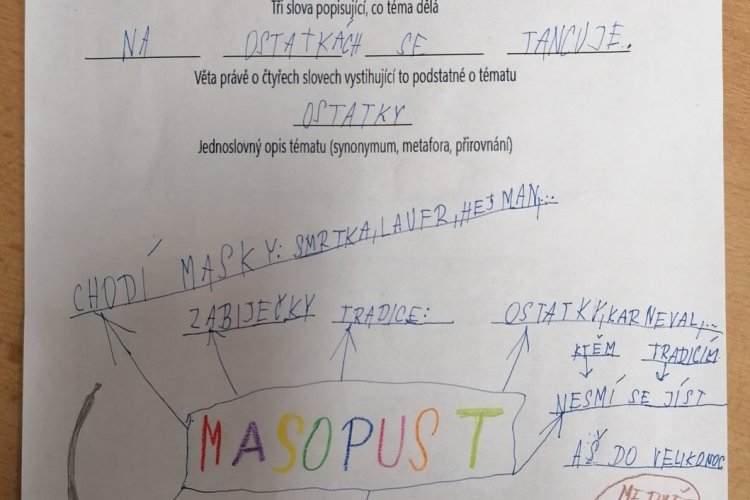 Tři slova popisující, co téma dělá
NA OSTATKÁCH SE TANCUJE.
Věta právě o čtyřech slovech vystihující to podstatné o tématu
OSTATKY
Jednoslovný opis tématu (synonymum, metafora, přirovnání)
CHODÍ MASKY: SMRTKA, LAUFR, HEJMAN,...
ZABIJEČKY TRADICE: OSTATKY, KARNEVAL,...
KTĚM TRADICÍM
NESMÍ SE JÍST
MASOPUST
AŠ DO VELIKONOC